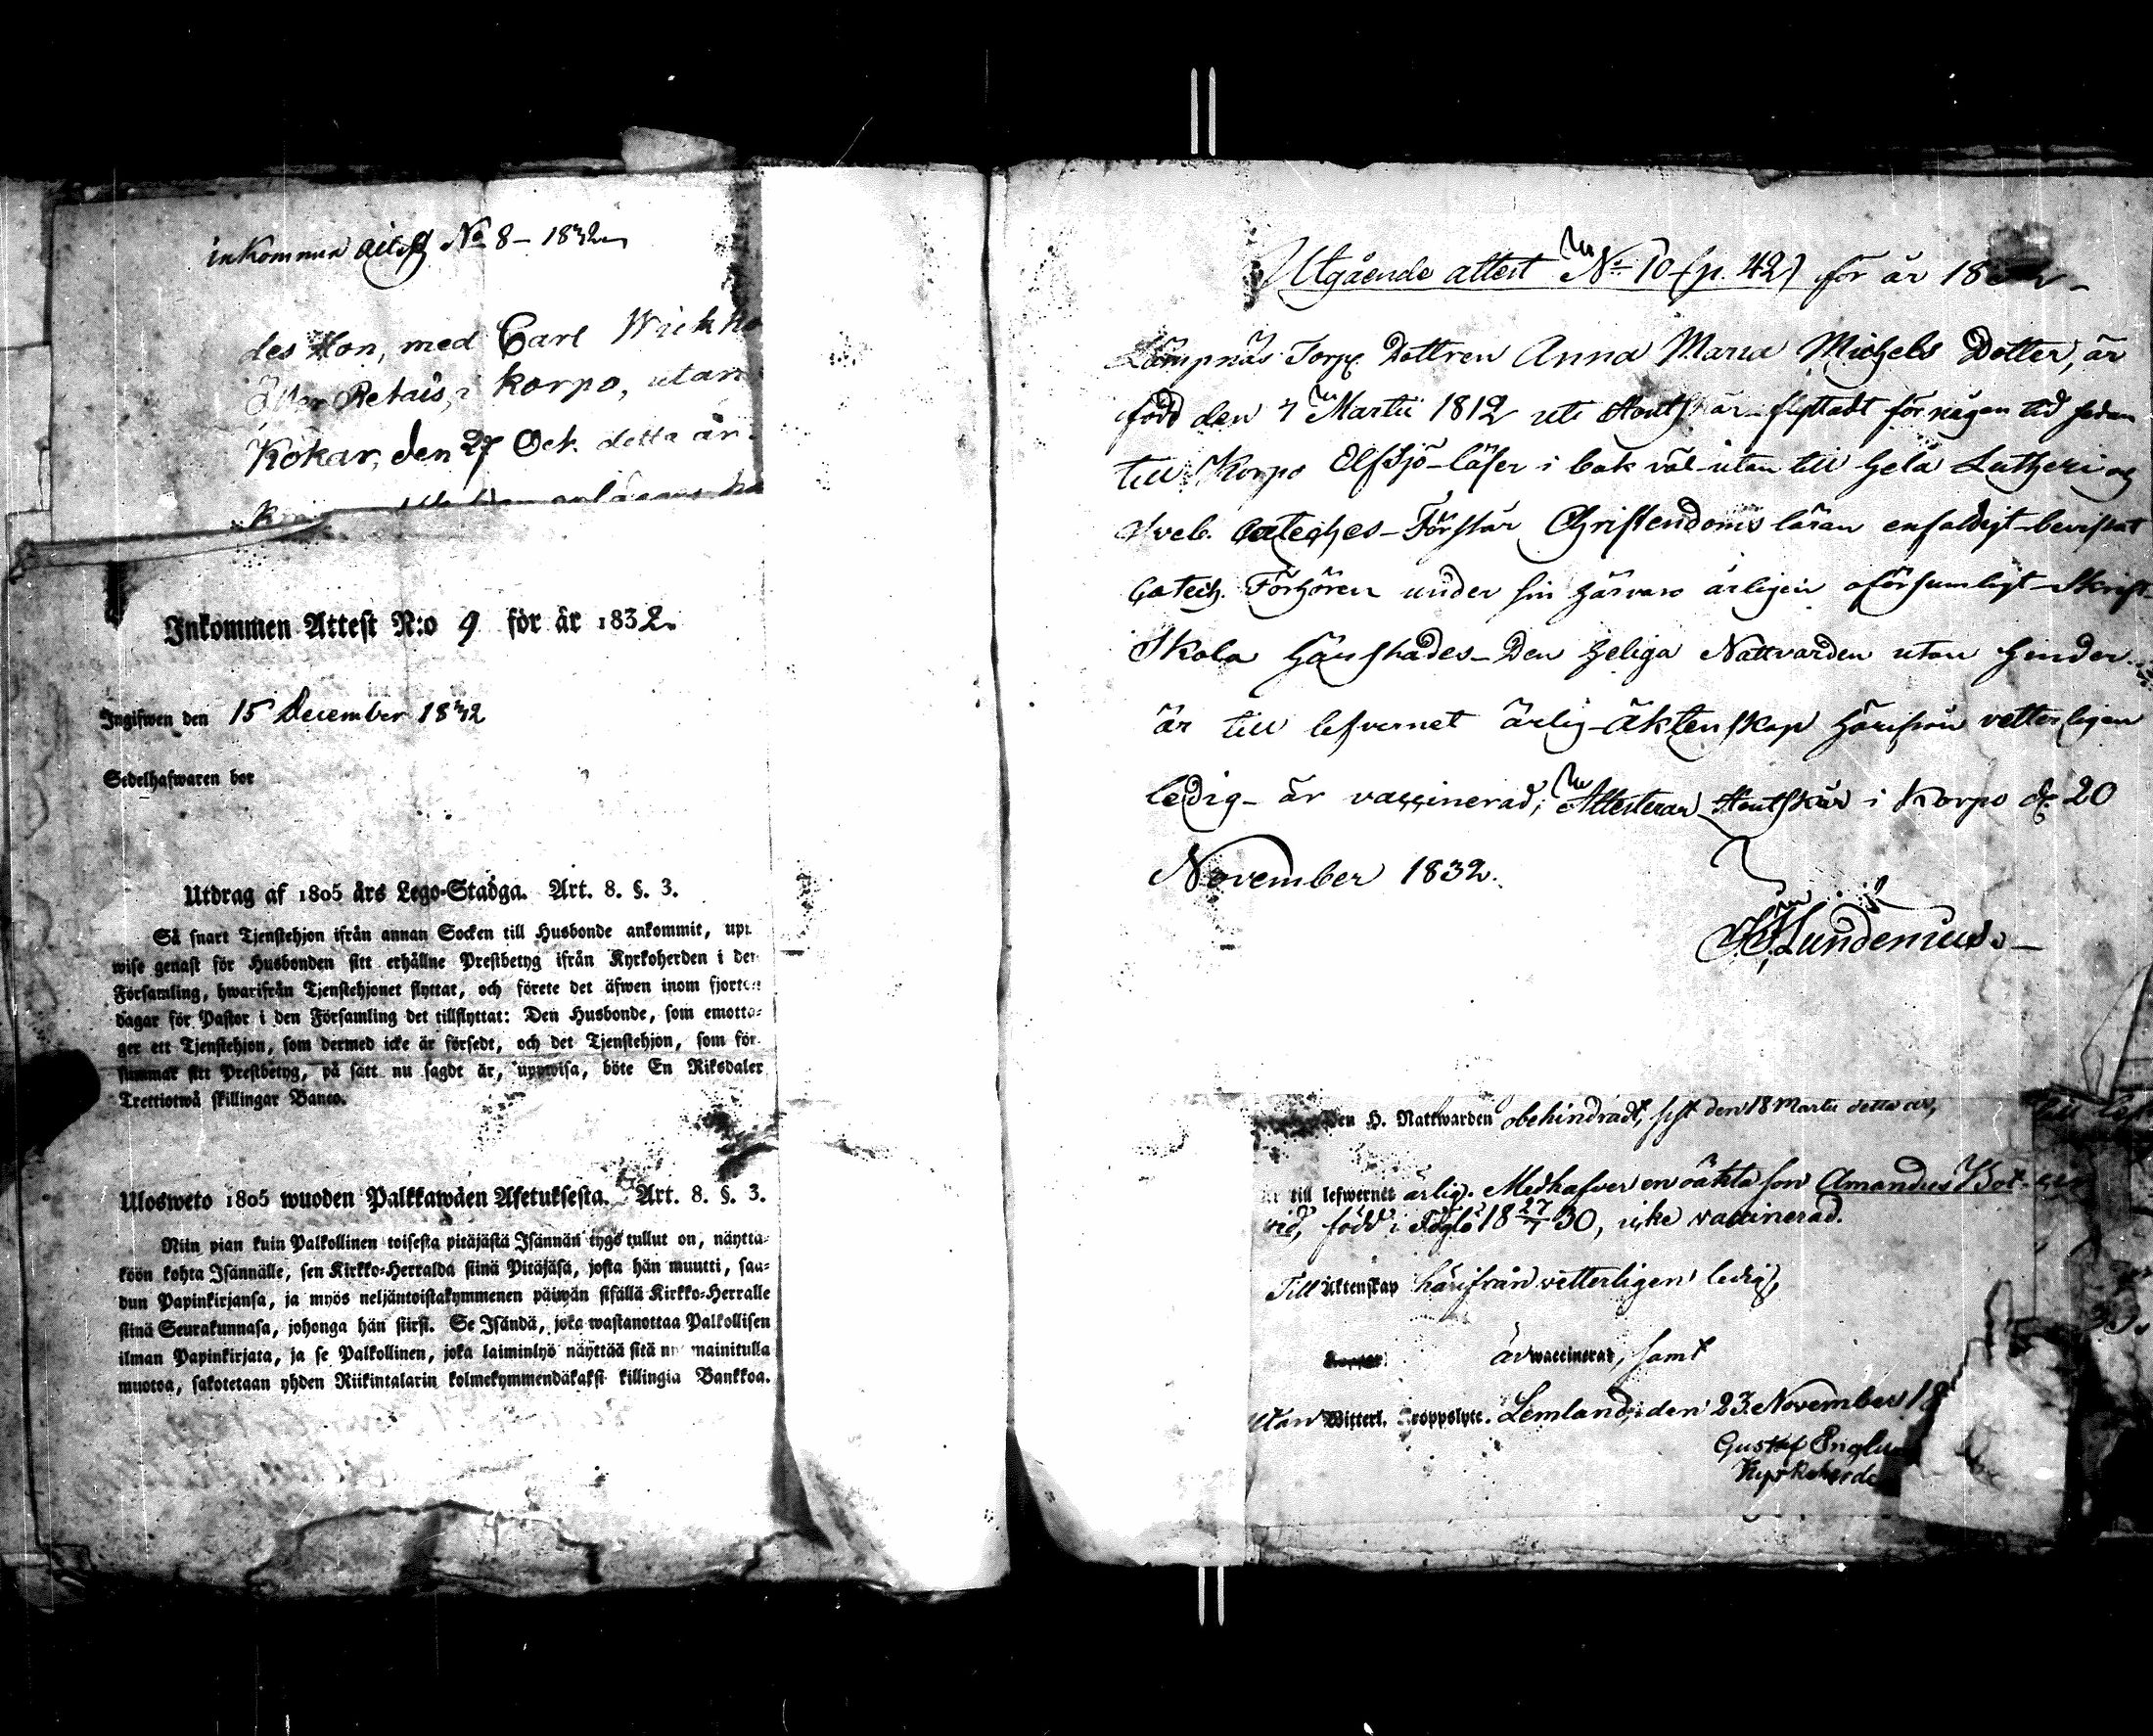 inkommen attest No 8 - 1832
des Hon, med Carl Wickho
Öster Retais, i Korpo, utan
Kökar, den 27 Oct. detta år.
Inkommen Attest N:o 9 för år 1832.
Ingifwen den 15 December 1832
Sedelhafwaren bor
Utdrag af 1805 års Lego-Stadga. Art. 8. §. 3.
Så snart Tjenstehjon ifrån annan Socken till Husbonde ankommit, upp
wise genast för Husbonden sitt erhållne Prestbetyg ifrån Kyrkoherden i den
Församling, hwarifrån Tjenstehjonet flyttat, och förete det äfwen inom fjorton
dagar för Pastor i den Församling det tillflyttat: Den Husbonde, som emotta-
ger ett Tjenstehjon, som dermed icke är försedt, och det Tjenstehjon, som för-
summar sitt Prestbetyg, på sätt nu sagdt är, uppwisa, böte En Riksdaler
Trettiotwå skillingar Banco.
Ulosweto 1805 wuoden Palkkawäen Asetuksesta. Art. 8. §. 3.
Niin pian kuin Palkollinen toisesta pitäjästä Isännän tygö tullut on, näyttä-
köön kohta Isännälle, sen Kirkko-Herralda siinä Pitäjäsä, josta hän muutti, saa-
dun Papinkirjansa, ja myös neljäntoistakymmenen päiwän sisällä Kirkko-Herralle
siinä Seurakunnasa, johonga hän siirsi. Se Isändä, joka wastanottaa Palkollisen
ilman Papinkirjata, ja se Palkollinen, joka laiminlyö näyttää sitä nyt mainitulla
muotoa, sakotetaan yhden Riikintalarin kolmekymmendäkaksi killingia Bankkoa.
Utgående attest No 10 (p. 42) för år 18
Lömpnäs Torp. Dottren Anna Maria Michels Dotter, är
född den 7 Martii 1812 uti Houtskär - flyttadt för någon tid sedan
till Korpo Elfsjö - läser i bok väl - utan till hela Lutheri og
Sveb. Cateches - Förstår Christendoms läran enfaldigt - bevistat
Catech. Förhören under sin härvaro årligen oförsumligt - Skrift
Skola härstädes - Den heliga Nattvarden utan hinder -
är till lefvernet ärlig - äktenskap härifrån vetterligen
ledig - är vaccinerad; Attesterar Houtskär i Korpo d. 20
November 1832.
Lundenius. -
Den H. Nattwarden obehindradt, sist den 18 Martii detta år,
är till lefwernet ärlig. Medhafver en oäkta son Amandus
vid, född i Föglö 18 27/7 30, icke vaccinerad.
Till Äktenskap härifrån vetterligen ledig,
är waccinerad, samt
utan Witterl. Kroppslyte. Lemland, den 23 November 18
Gustaf Englu
Kyrkoherde